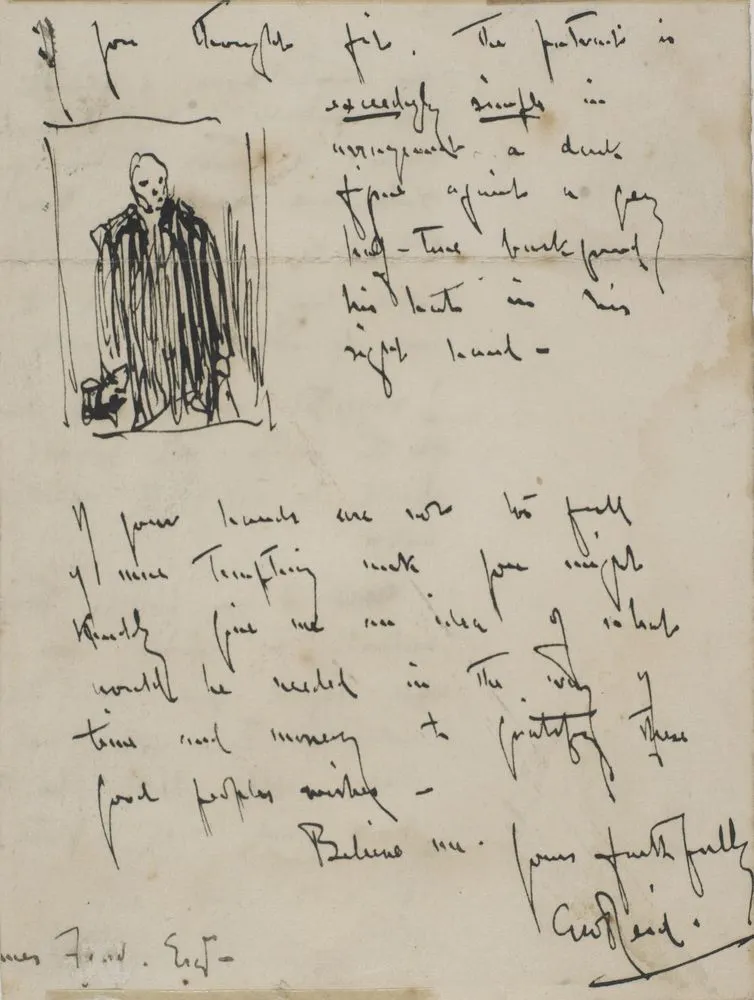 if you thought fit. The portrait is
exceedingly simple in
arrangement a dark
figure against a grey
half-tone background
his hat in his
right hand -
If your hands are not too full
of more tempting work you might
kindly give me an idea of what
would be needed in the way of
time and money to gratify these
good peoples wishes -
Believe me. yours faithfully
Geo Reid.
Esqr -